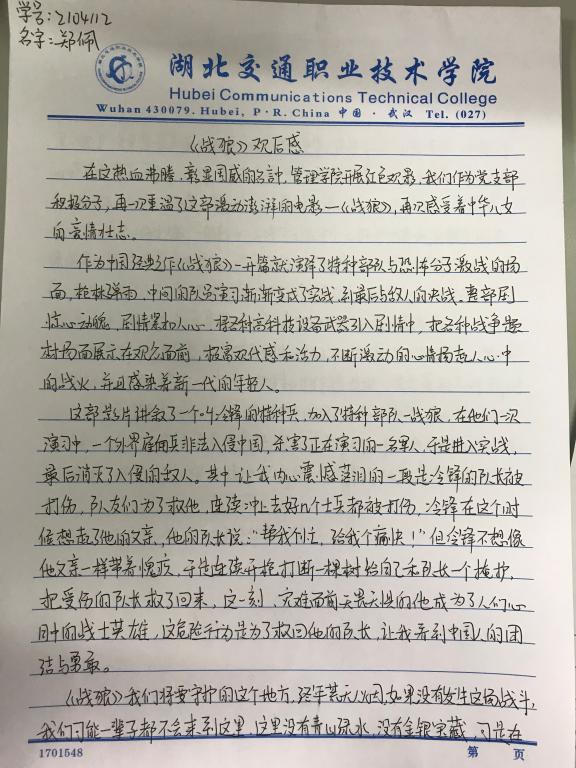 学号:2104112
名字:郑佩
湖北交通职业技术学院
Hubei Communications Technical College
Wuhan 430079. Hubei, P·R. China 中国·武汉 Tel. (027)
《战狼》观后感
在这热血沸腾,彰显国威的,管理学院开展红色观影,我们作为党支部
积极分子,再一次重温了这部激动澎湃的电影—《战狼》,再次感受着中华儿女
的豪情壮志。
作为中国经典作《战狼》一开篇就演绎了特种部队与恐怖分子激战的场
面,枪林弹雨,中间的队员演习渐渐变成了实战,到最后与敌人的决战。整部剧
惊心动魄,剧情深扣人心,将各种高科技设备武器引入剧情中,把各种战争题
材场面展示在观众面前,极富现代感和活力,不断激动的心情扬起人心中
的战火,并且感染着新一代的年轻人。
这部影片讲叙了一个叫冷锋的特种兵,加入了特种部队—战狼,在他们一次
演习中,一个外界雇佣兵非法入侵中国,杀害了正在演习的一名军人,于是进入实战,
最后消灭了入侵的敌人。其中让我内心震感落泪的一段是冷锋的队长被
打伤,队友们为了救他,连续冲上去好几个士兵都被打伤,冷锋在这个时
候想起了他的父亲,他的队长说:"帮我个忙,给我个痛快!"但冷锋不想像
他父亲一样带着愧疚,于是连续开枪打断一棵树给自己和队长一个掩护,
把受伤的队长救了回来,这一刻,灾难面前无畏无惧的他成为了人们心
目中的战士英雄,这危险行为是为了救回他的队长,让我看到中国人的团
结与勇敢。
《战狼》我们将要守护的这个地方,经年荒无人烟,如果没有发生这场战斗,
我们可能一辈子都不会来到这里,这里没有青山绿水,没有金银宝藏,可是在
1701548
第 页